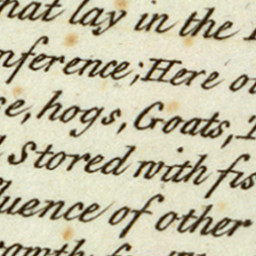 hat lay in the
nference; Here
se, hogs, Goats,
Stored with fis
luence of other